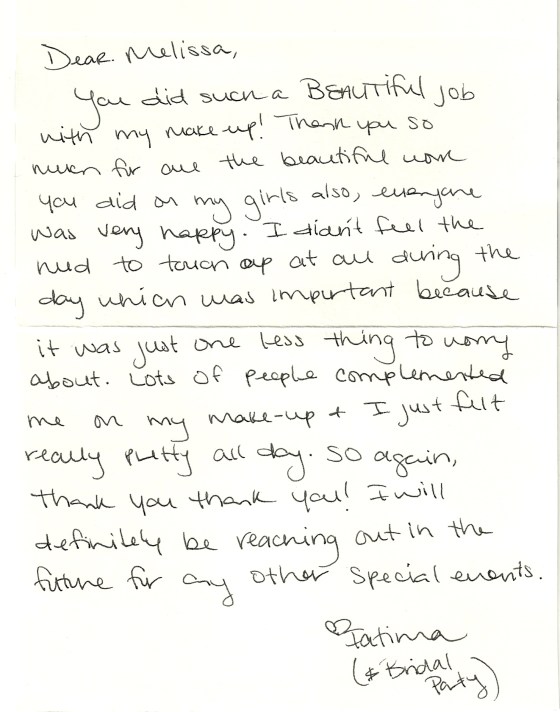 Dear Melissa,
You did such a BEAUTIFul job
with my make-up! Thank you so
much for all the beautiful work
you did on my girls also, everyone
was very happy. I didn't feel the
need to touch up at all during the
day which was important because
it was just one less thing to worry
about. Lots of people complemented
me on my make-up + I just felt
really pretty all day. So again,
thank you thank you! I will
definitely be reaching out in the
future for any other special events.
♡ Fatima
(& Bridal
Party)